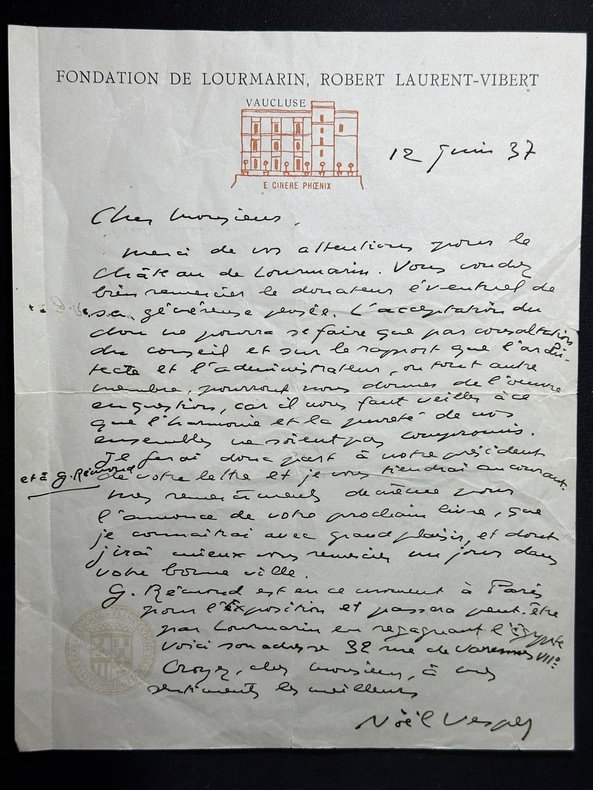 FONDATION DE LOURMARIN, ROBERT LAURENT-VIBERT
VAUCLUSE
E CINERE PHŒNIX
12 Juin 37
Cher Monsieur,
Merci de vos attentions pour le
Château de Lourmarin. Vous voudrez
bien remercier le donateur éventuel de
sa généreuse pensée. L'acceptation du
don ne pourra se faire que par consultation
du conseil et sur le rapport que l'archi-
tecte et l'administrateur, ou tout autre
membre, pourront nous donner de l'œuvre
en question, car il nous faut veiller à ce
que l'harmonie et la pureté de nos
ensembles ne soient pas compromis.
Je ferai donc part à notre président
et à G. Rémond
de votre lettre et je vous tiendrai au courant.
Mes remerciements de même pour
l'annonce de votre prochain livre, que
je connaîtrai avec grand plaisir, et dont
j'irai mieux vous remercier un jour dans
votre bonne ville.
G. Rémond est en ce moment à Paris
pour l'Exposition et passera peut-être
par Lourmarin en regagnant l'Égypte
voici son adresse 32 rue de Varennes VIIe
Croyez, cher Monsieur, à mes
sentiments les meilleurs
Noël Vesper